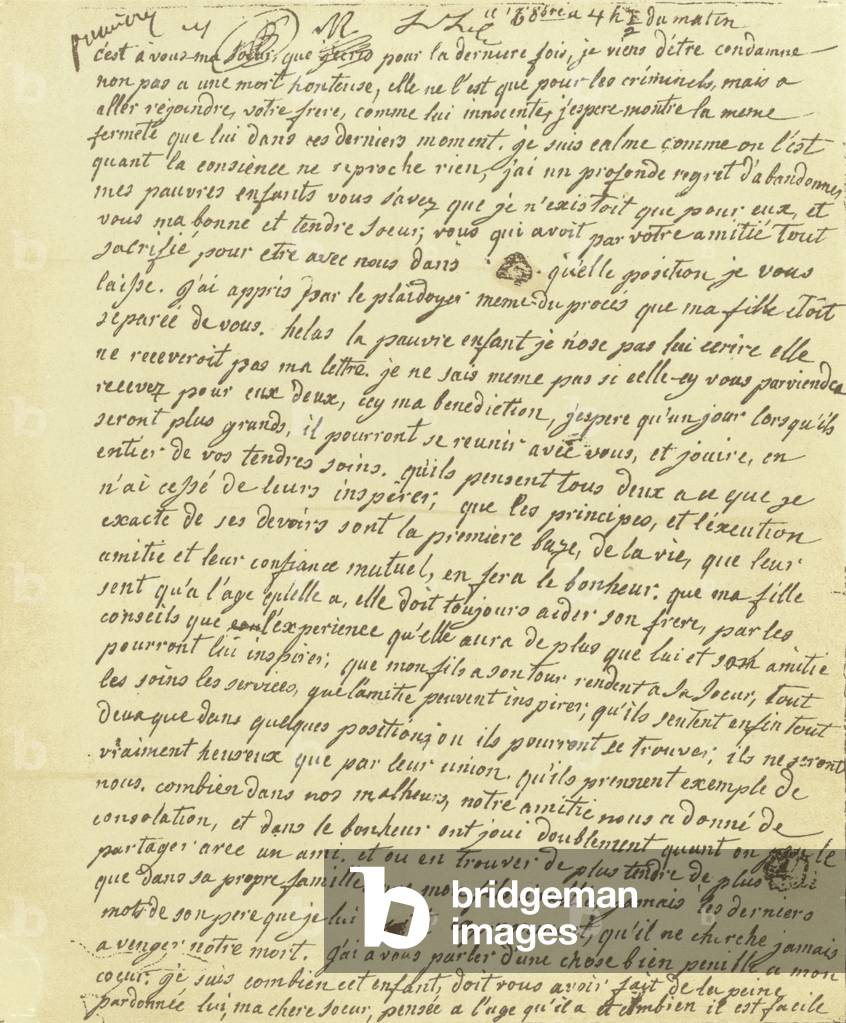 première
ce 16 8bre a 4 h ½ du matin
c'est à vous ma soeur, que j'ecris pour la derniere fois, je viens d'etre condamne
non pas a une mort honteuse, elle ne l'est que pour les criminels, mais a
aller rejoindre, votre frere, comme lui innocente, j'espere montre la meme
fermeté que lui dans ces derniers moment. je suis calme comme on l'est
quant la consience ne reproche rien, j'ai un profonde regret d'abandonner
mes pauvres enfants vous savez que je n'existoit que pour eux, et
vous ma bonne et tendre soeur; vous qui avoit par votre amitié tout
sacrifié pour etre avec nous dans quelle position je vous
laisse. j'ai appris par le plaidoyer meme du proces que ma fille étoit
separéé de vous. helas la pauvre enfant je n'ose pas lui ecrire elle
ne receveroit pas ma lettre. je ne sais meme pas si celle-cy vous parviendra
recevez pour eux deux, icy ma benediction, j'espere qu'un jour lorsqu'ils
seront plus grands, il pourront se reunir avec vous, et jouire, en
entier de vos tendres soins. qu'ils pensent tous deux a ce que je
n'ai cessé de leurs inspérer; que les principes, et l'éxecution
exacte de ses devoirs sont la premiere baze, de la vie, que leur
amitie et leur confiance mutuel, en fera le bonheur; que ma fille
sent qu'a l'age qu'elle a, elle doit toujours aider son frere, par les
conseils que l'éxperience qu'elle aura de plus que lui et son amitie
pourront lui inspirer; que mon fils a son tour rendent a sa soeur, tout
les soins les services, que l'amitie peuvent inspirer; qu'ils sentent enfin tout
deux que dans quelques positions, ou ils pourront se trouver; ils ne seront
vraiment heureux que par leur union. qu'ils prennent exemple de
nous. combien dans nos malheurs, notre amitie nous a donné de
consolation, et dans le bonheur ont joui doublement quant on peu le
partager avec un ami. et ou en trouver de plus tendre de plus
que dans sa propre famille jamais les derniers
mots de son pere que je lui qu'il ne cherche jamais
a venger notre mort. j'ai a vous parler d'une chose bien penille a mon
coeur. je sais combien cet enfant, doit vous avoir fait de la peine
pardonnée lui, ma chere soeur, pensée a l'age qu'il a et combien il est facile
bridgeman
images